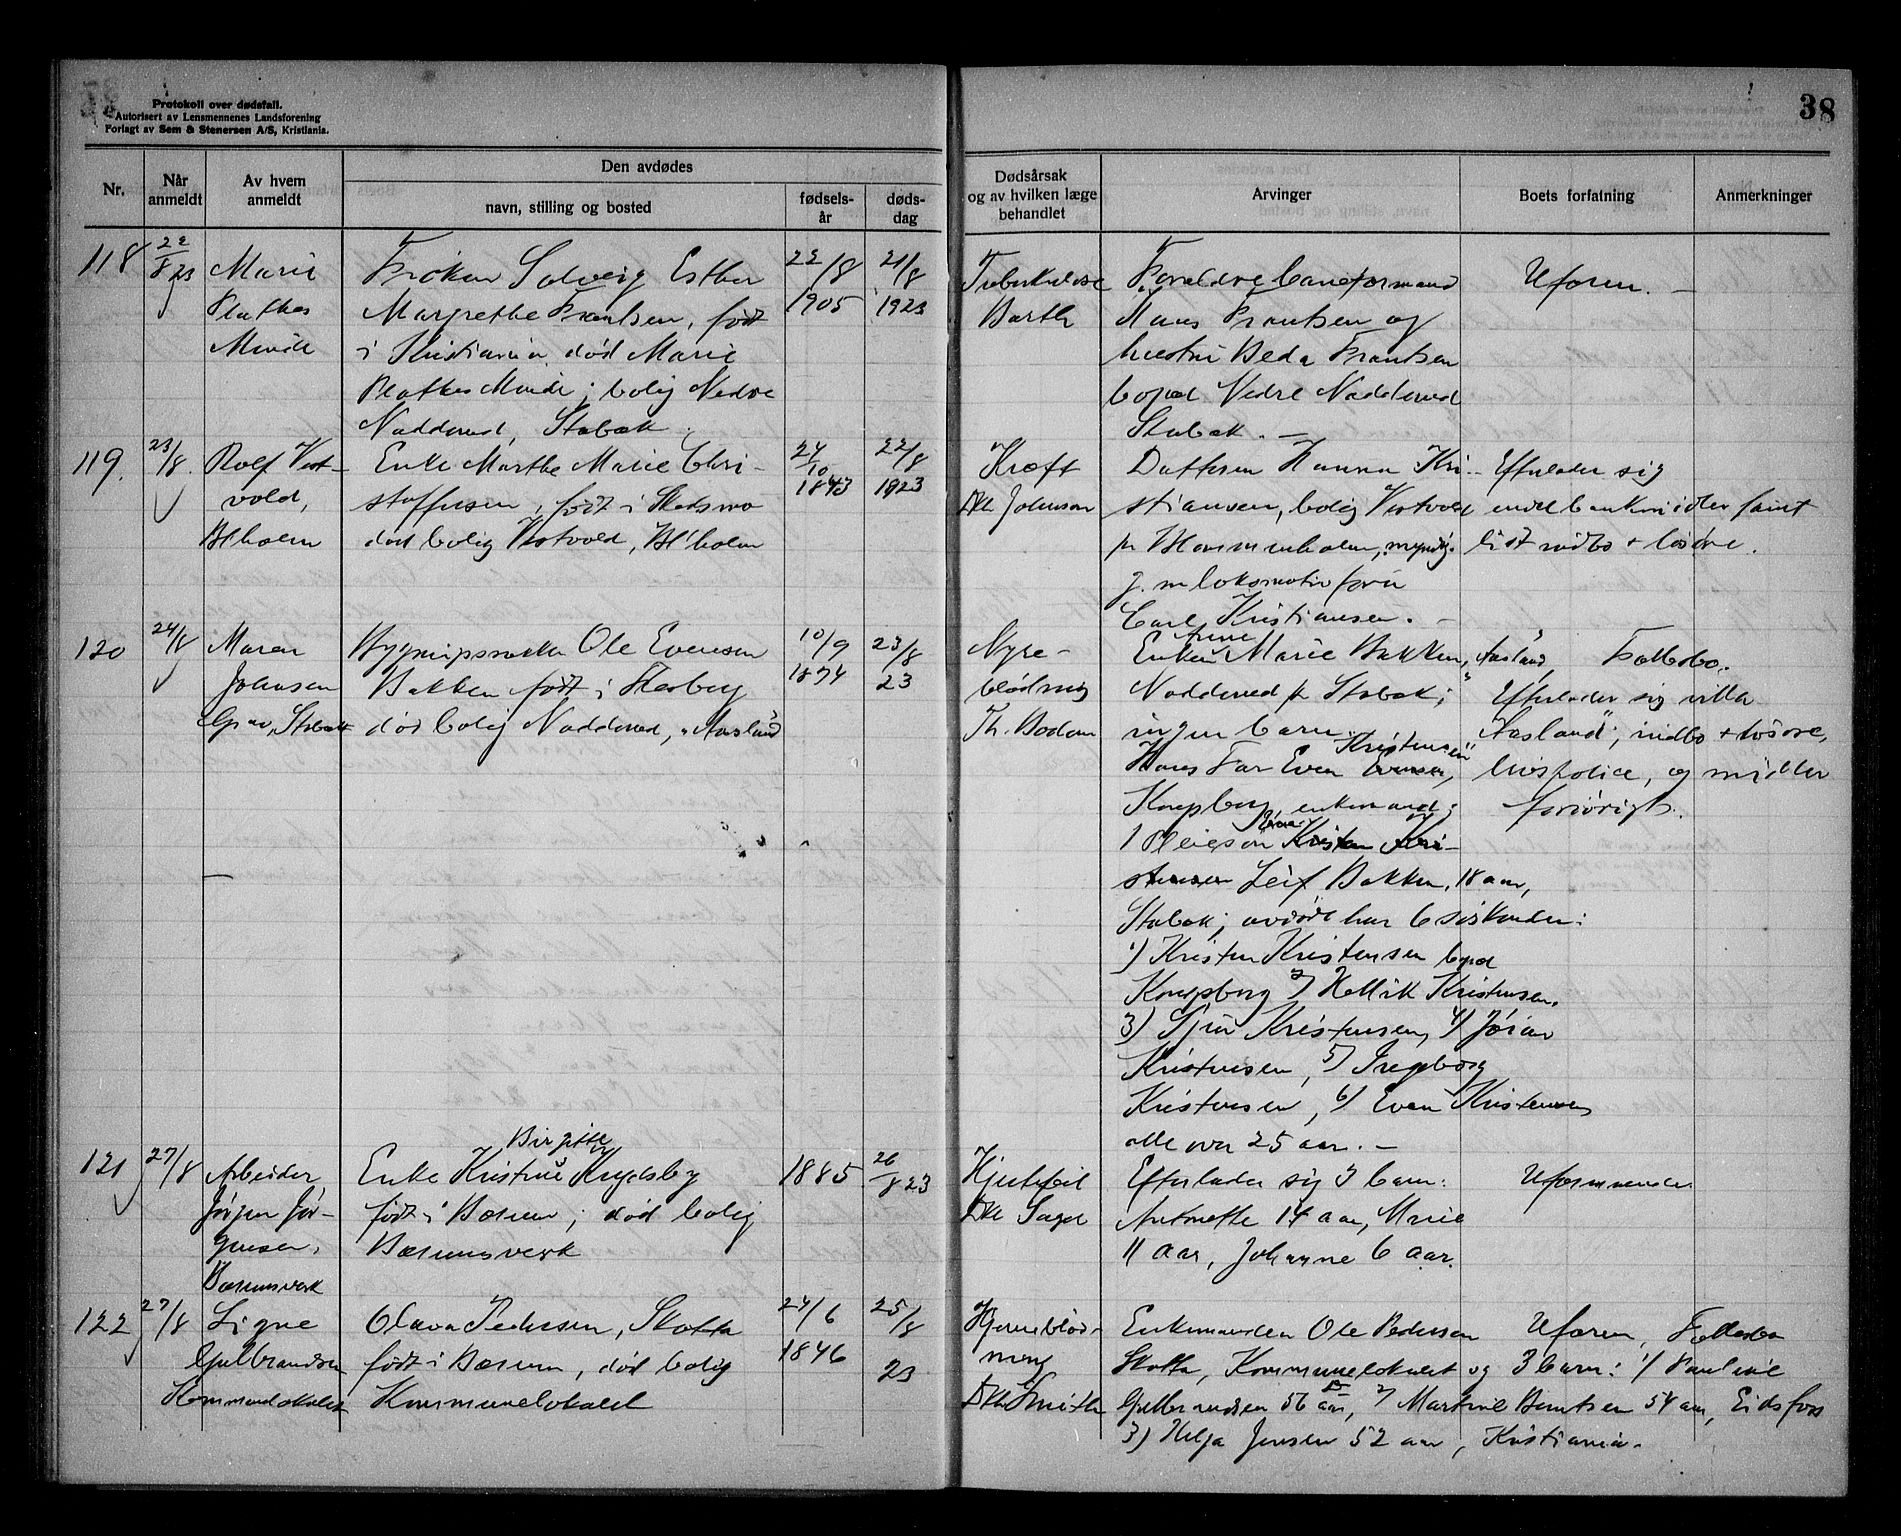 Protokoll over dødsfall.
Autorisert av Lensmennenes Landsforening
Forlagt av Sem & Stenersen A/S, Kristiania.
38
Nr.
Når
anmeldt
Av hvem
anmeldt
Den avdødes
navn, stilling og bosted
fødsels-
år
døds-
dag
Dødsårsak
og av hvilken læge
behandlet
Arvinger
Boets forfatning
Anmerkninger
118
22/8 23
Marie
Plathes
Minde
Frøken Solveig Esther
Margrethe Frantsen, født
i Kristiania død Marie
Plathes Minde; bolig Nedre
Nadderud, Stabæk.
22/8
1905
21/8
1923
Tuberkulose
Barth
Forældre baneformand
Hans Frantsen og
hustru Beda Frantsen
bopæl Nedre Nadderud
Stabæk. —
Uformu. —
119.
23/8
Rolf Vest-
vold,
Bl.holm
Enke Marthe Marie Chri-
stoffersen, født i Skedsmo
død bolig Vestvold, Bl.holm
24/10
1843
22/8
1923
Kræft
Dr. Johnson
Datteren Hanna Kri-
stiansen, bolig Vestvold
pr Blommenholm, myndig.
g. m lokomotivfører
Carl Kristiansen. —
Efterlader sig
endel bankmidler samt
lidt indbo + løsøre.
120
24/8
Maren
Johansen
Grav, Stabæk
Bygningssnekker Ole Evensen
Bakken født i Flesberg
død bolig Nadderud, "Aasland"
10/9
1874
23/8
23
Nyre-
blødning
Th. Bodom
Enken Anne Marie Bakken, "Aasland",
Nadderud pr Stabæk;
ingen barn.
Hans Far Even Kristensen,
Kongsberg, enkemand;
1 Pleiesøn
Leif Bakken, 18 aar,
Stabæk; avdøde har 6 søskender:
1) Kristen Kristensen bopæl
Kongsberg 2) Hellik Kristensen,
3) Kristensen, 4) Jøran
Kristensen, 5) Ingeborg
Kristensen, 6) Even Kristensen
alle over 25 aar. —
Fællesbo.
Efterlader sig villa
"Aasland", indbo + løsøre,
livspolice, og midler
forøvrigt.
121
27/8
Arbeider
Jørgen Jør-
gensen,
Bærumsverk
Birgitte
Enke Kristine
født i Bærum; død bolig
Bærumsverk
1885
26/8 23
Hjertefeil
Dr.
Efterlader sig 3 barn:
Antonette 14 aar, Marie
11 aar, Johanne 6 aar.
Uformuende.
122
27/8
Signe
Gulbrandsen
Kommunelokalet
Olava Pedersen, Skotta
født i Bærum, død bolig
Kommunelokalet
24/6
1846
25/8
23
Hjerneblød-
ning
Dr. Smith
Enkemanden Ole Pedersen
Skotta, Kommunelokalet og 3 barn: 1) Pauline
Gulbrandsen 56 aar, 2) Martine Berntsen 54 aar, Eidsfos
3) Helga Jensen 52 aar, Kristiania.
Uformu, Fællesbo